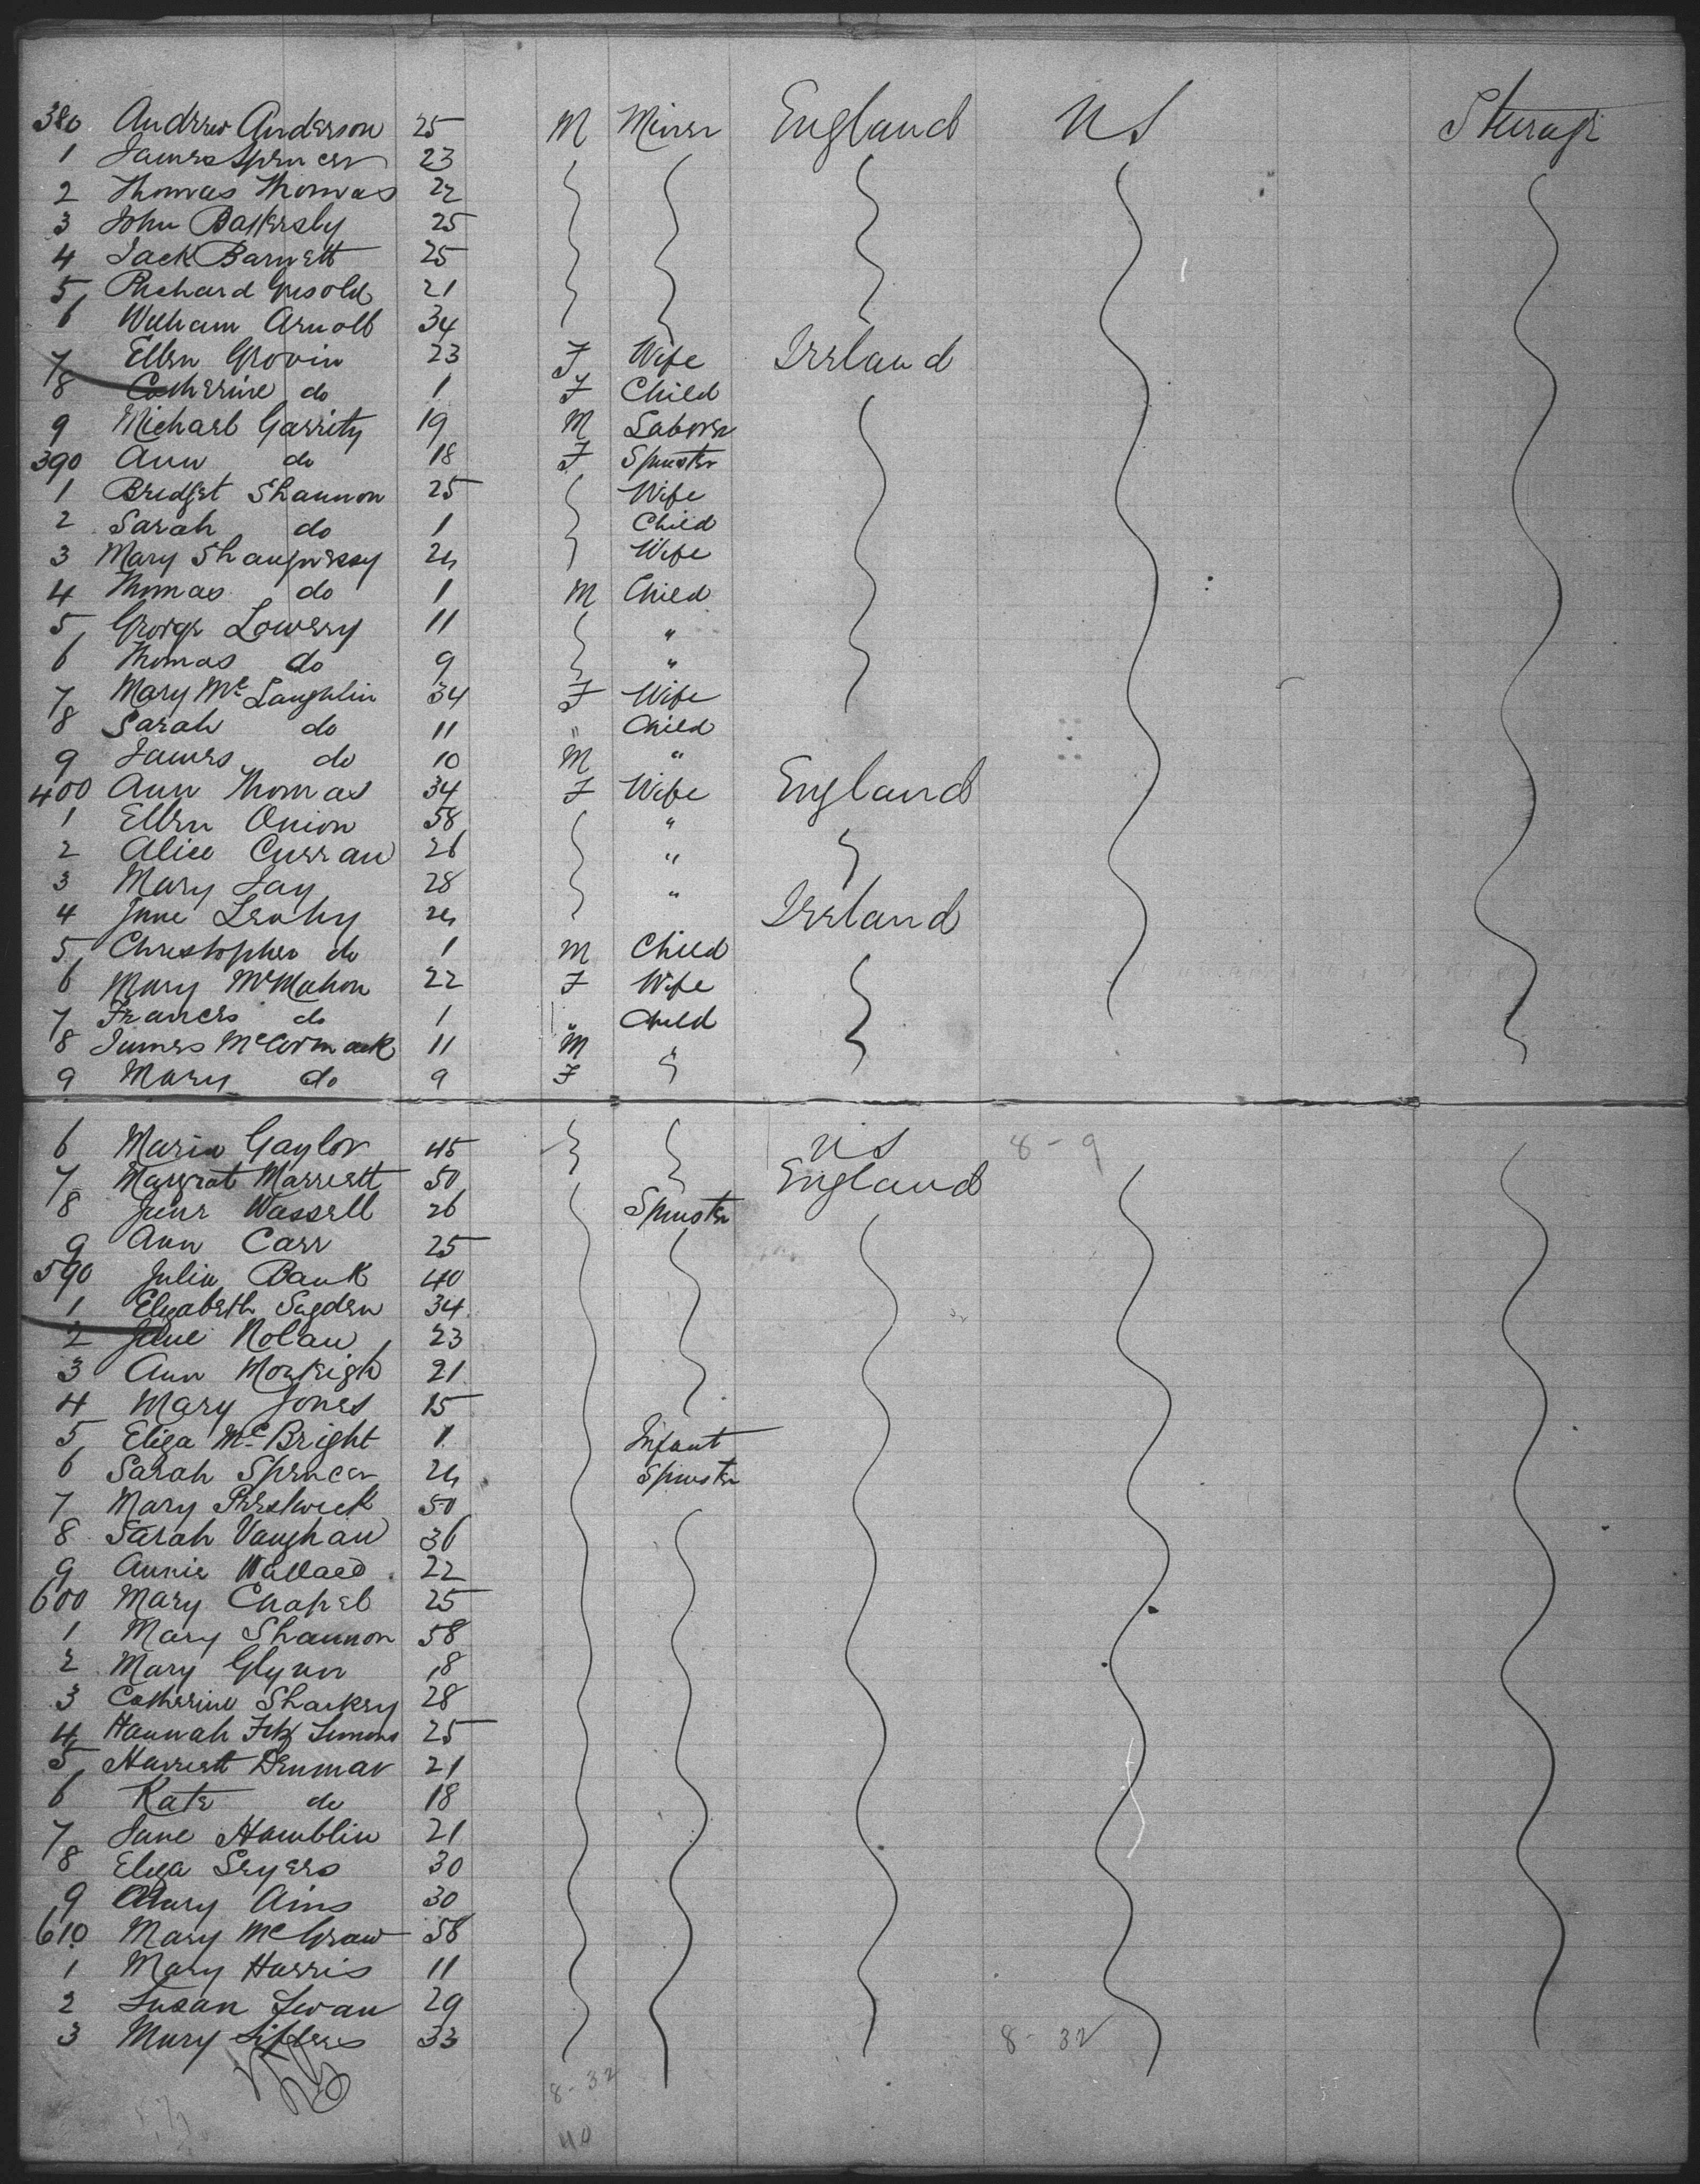 380 Andrew Anderson 25 M Miner England US Steerage
1 James Spencer 23
2 Thomas Thomas 22
3 John Battersby 25
4 Jack Barnett 25
5 Richard Grisold 21
6 William Arnold 34
7 Ellen Grovin 23 F Wife Ireland
8 Catherine do 1 F Child
9 Michael Garrity 19 M Laborer
390 Ann do 18 F Spinster
1 Bridget Shannon 25 Wife
2 Sarah do 1 Child
3 Mary Shaugnessy 24 Wife
4 Thomas do 1 M Child
5 George Lowery 11 "
6 Thomas do 9 "
7 Mary Mc Laughlin 34 F Wife
8 Sarah do 11 " Child
9 James do 10 M "
400 Ann Thomas 34 F Wife England
1 Ellen Onion 58 "
2 Alice Curran 26 "
3 Mary Jay 28 "
4 Jane Leahy 24 Ireland
5 Christopher do 1 M Child
6 Mary McMahon 22 F Wife
7 Frances do 1 " Child
8 James McCormack 11 M
9 Mary do 9 F
6 Maria Gaylor 45 US 8-9
7 Margrat Marriett 50 England
8 Jane Wassell 26 Spinster
9 Ann Carr 25
590 Julia Bank 40
1 Elizabeth Sugden 34
2 Jane Nolan 23
3 Ann 21
4 Mary Jones 15
5 Eliza Mc Bright 1 Infant
6 Sarah Spencer 24 Spinster
7 Mary Prestwick 50
8 Sarah Vaughan 36
9 Annie Wallace 22
600 Mary Chapel 25
1 Mary Shannon 58
2 Mary Glynn 18
3 Catherine Sharkey 28
4 Hannah Fitz Simons 25
5 Harriett Denmar 21
6 Kate do 18
7 Jane Hamblin 21
8 Eliza Seyers 30
9 Mary Ains 30
610 Mary McGraw 58
1 Mary Harris 11
2 Susan Swan 29
3 Mary 33 8-32
8-32
40